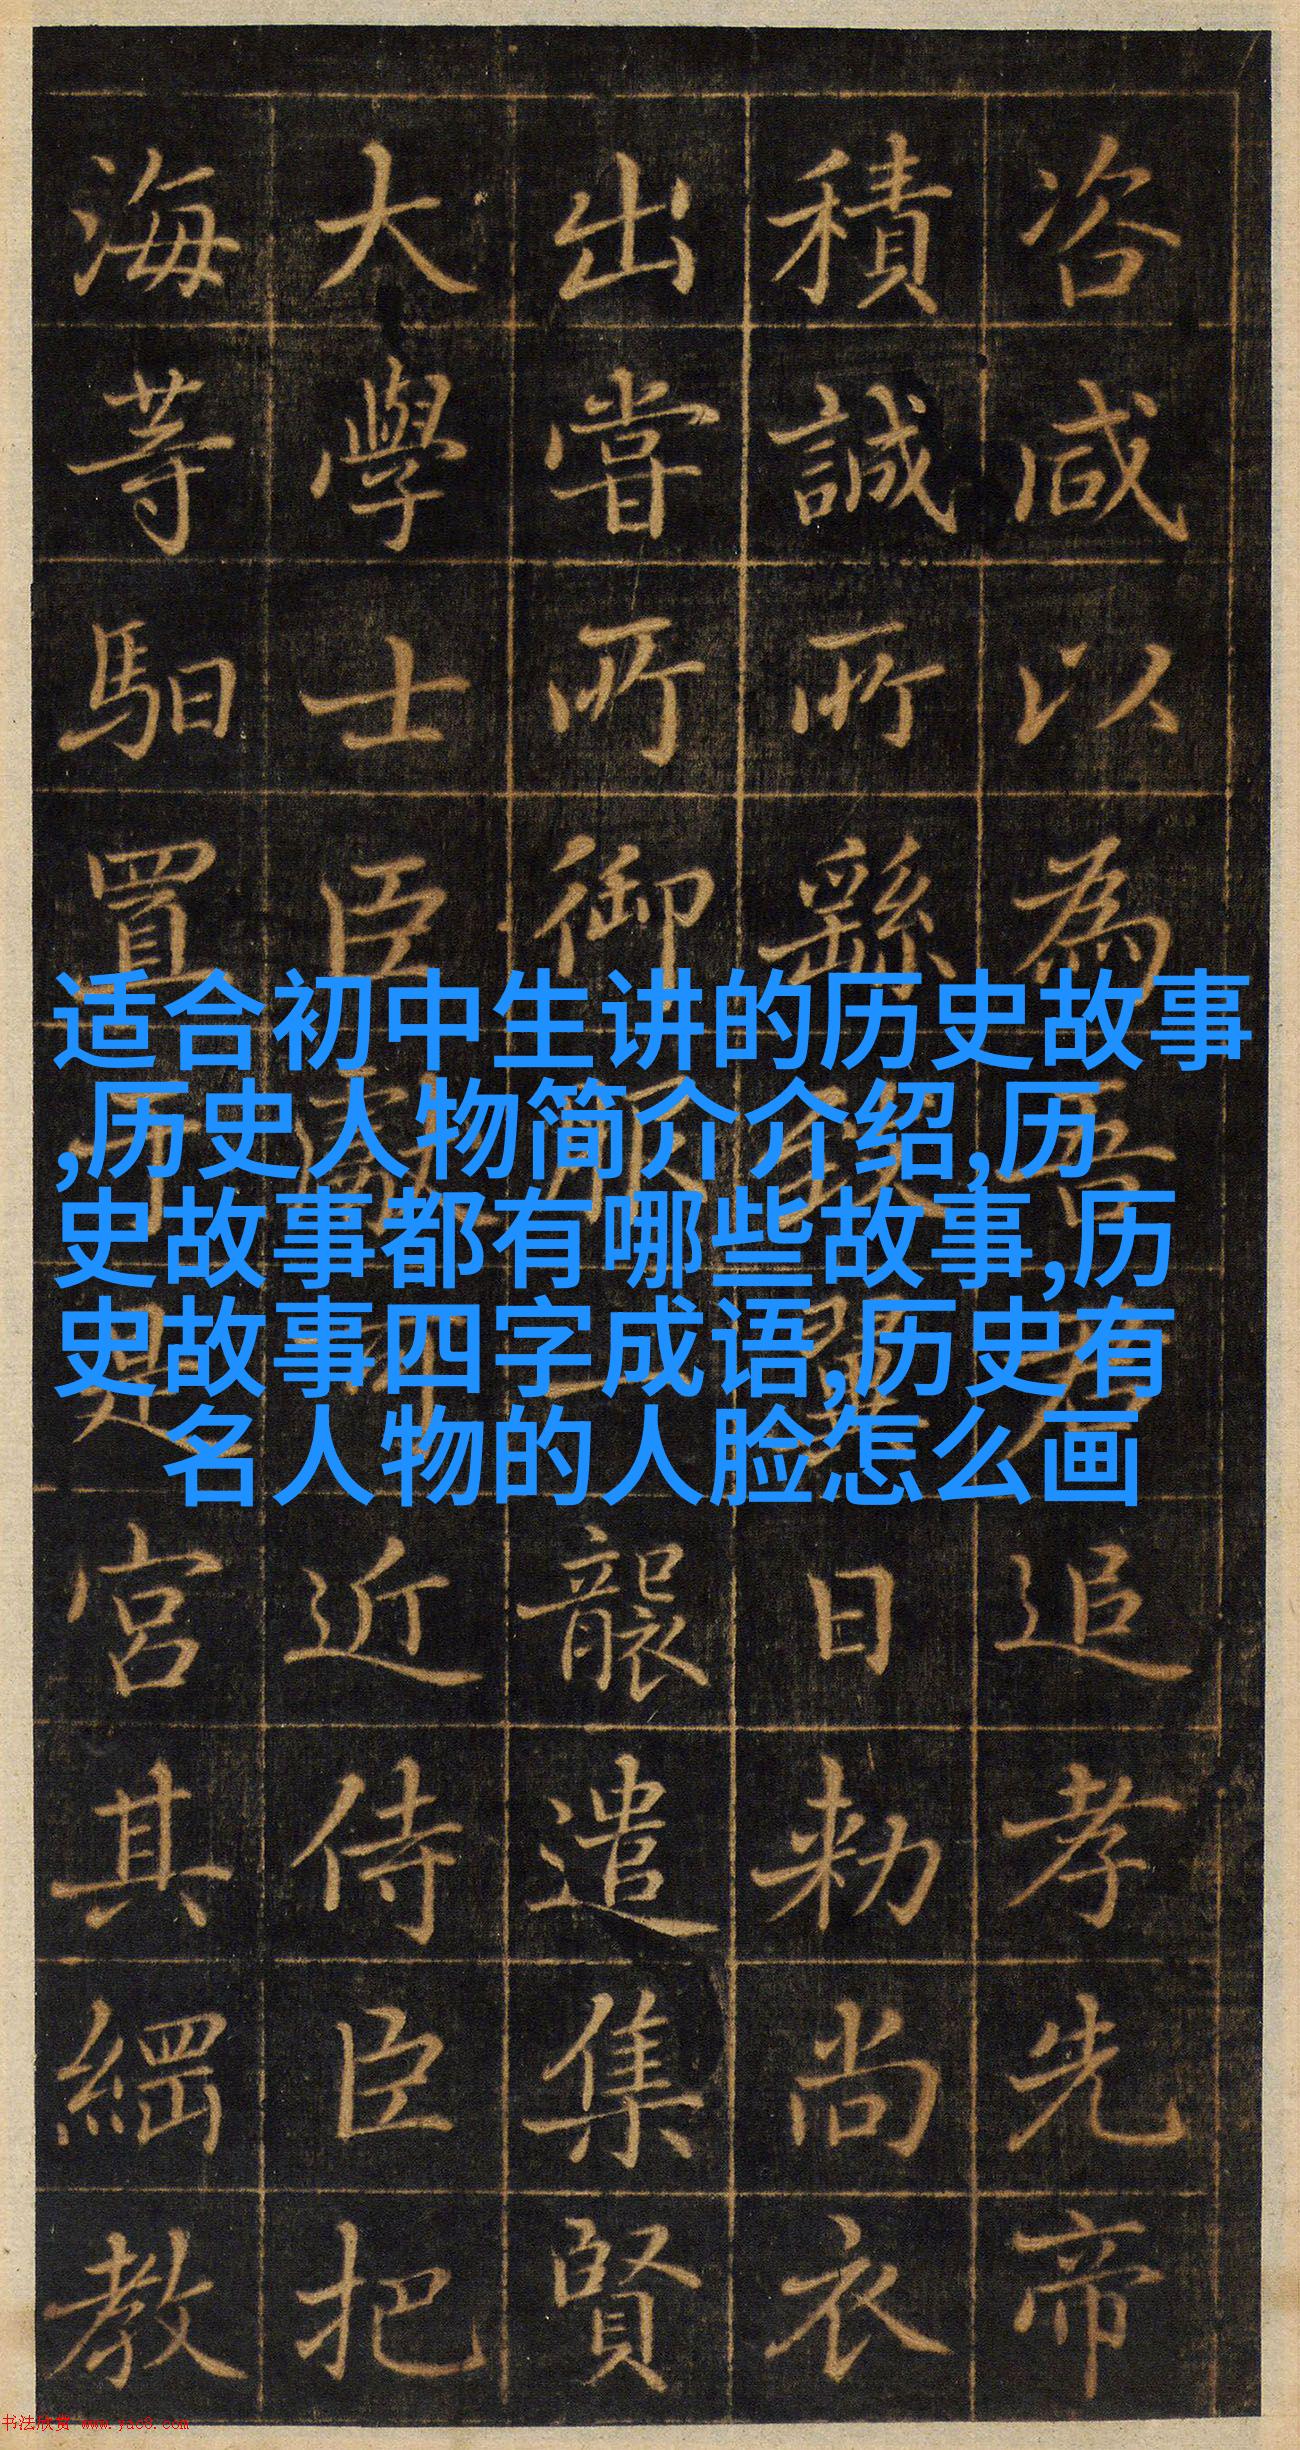 咨咸以為吾君追孝先帝
積誠所繇致異日敕尚衣
出嘗所御服一襲遣集賢
大學士臣近侍臣把
海等馹置于是宮其綱教
适合初中生讲的历史故事
,历史人物简介介绍,历
史故事都有哪些故事,历
史故事四字成语,历史有
名人物的人脸怎么画
书法欣赏 www.yac8.com